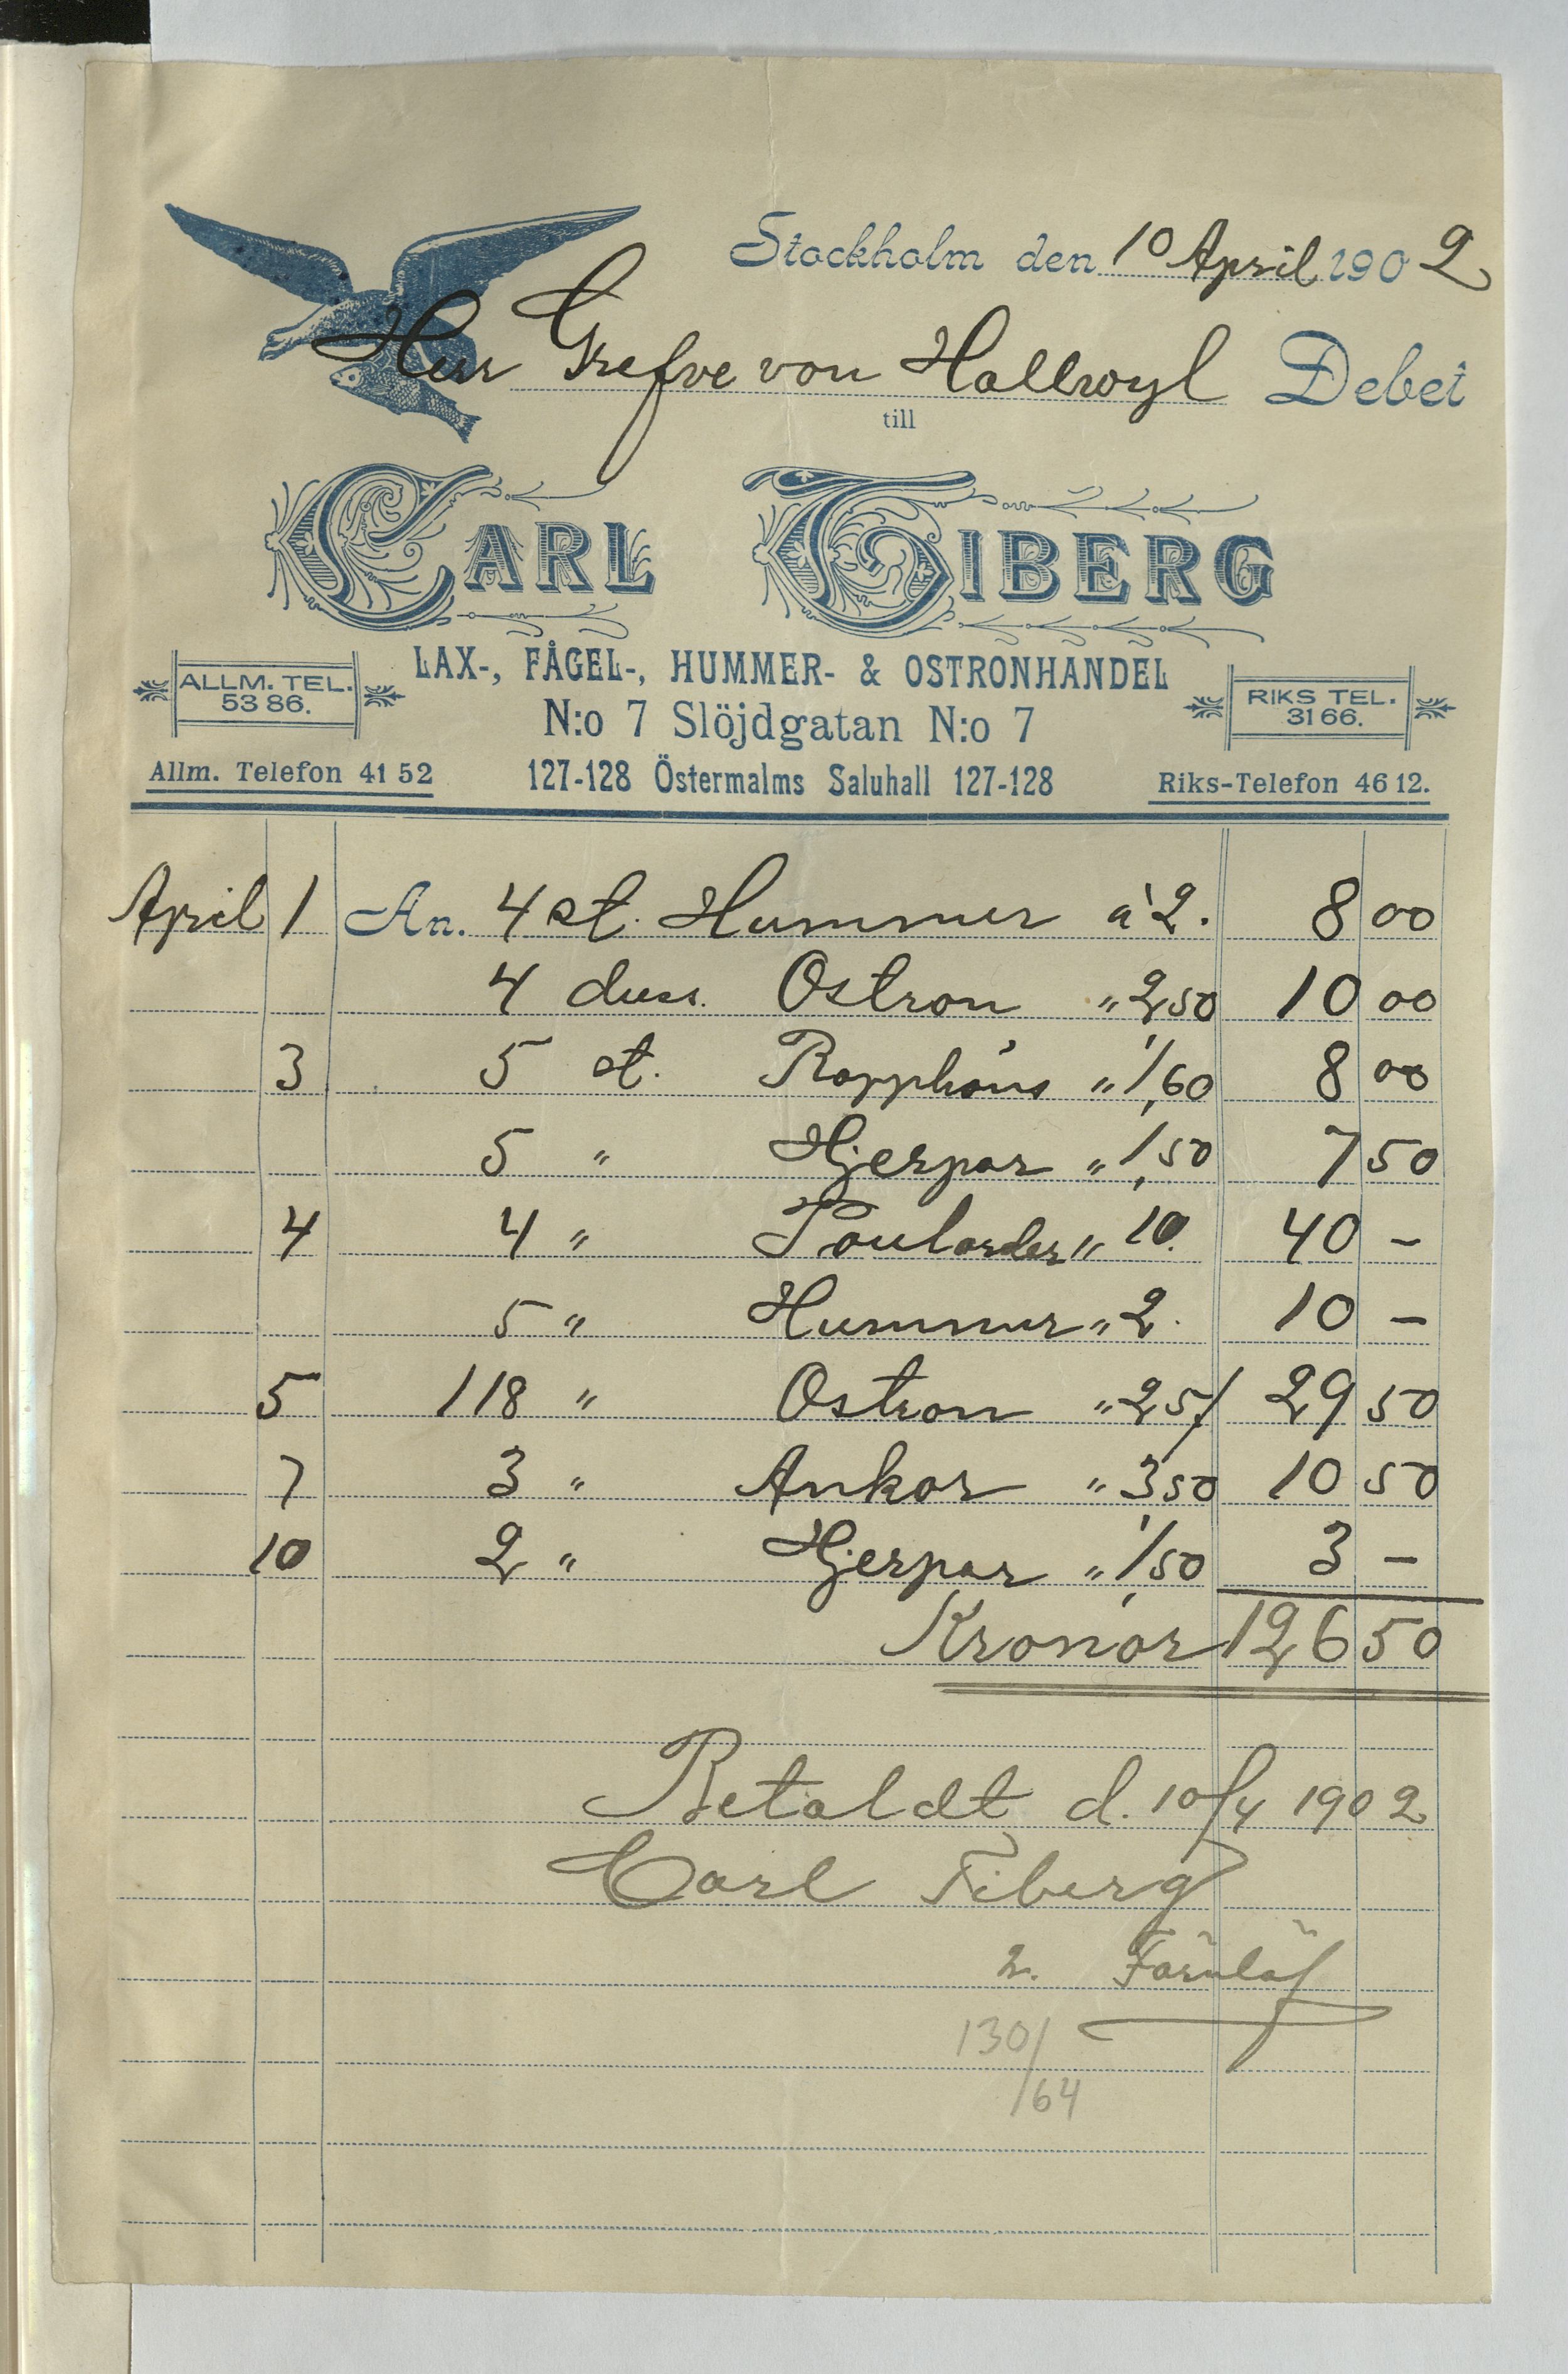 Stockholm den 10 April 1902
Herr Grefve von Hallwyl Debet
till
CARL TIBERG
LAX-, FÅGEL-, HUMMER- & OSTRONHANDEL
ALLM. TEL. 53 86.
N:o 7 Slöjdgatan N:o 7
RIKS TEL. 31 66.
Allm. Telefon 41 52 127-128 Östermalms Saluhall 127-128 Riks-Telefon 46 12.
April 1 An. 4 st. Hummer à 2. 8 00
4 duss. Ostron " 2,50 10 00
3 5 st. Rapphöns " 1,60 8 00
5 " Hjerpar " 1,50 7 50
4 4 " Poularder " 10. 40 -
5 " Hummer " 2. 10 -
5 118 " Ostron " 25/ 29 50
7 3 " Ankor " 3,50 10 50
10 2 " Hjerpar " 1,50 3 -
Kronor 126 50
Betaldt d. 10/4 1902
Carl Tiberg
130/
/64